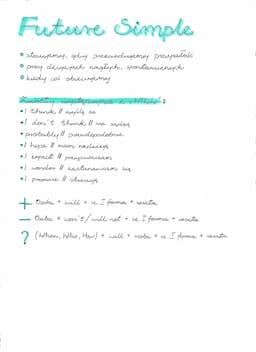 Future Simple
stosujemy, gdy przewidujemy przyszłość
przy decyzjach nagłych, spontanicznych
kiedy coś obiecujemy
Zwroty występujące z :
I think // myślę, że
I don't think // nie sądzę
probably // prawdopodobnie
I hope // mam nadzieję
I expect // przypuszczam
I wonder // zastanawiam się
I promise // obiecuję
+ Osoba + will + cz. I forma + reszta
- Osoba + won't / will not + cz. I forma + reszta
? (When, Who, How) + will + osoba + cz. I forma + reszta